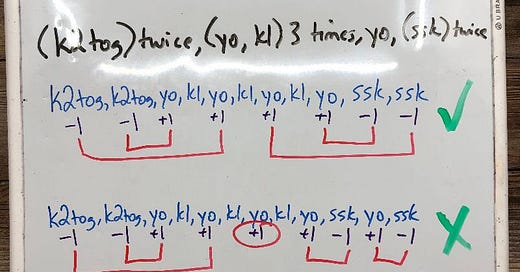 (k2tog) twice, (yo, k1) 3 times, yo, (ssk) twice
k2tog, k2tog, yo, k1, yo, k1, yo, k1, yo, ssk, ssk
-1 -1 +1 +1 +1 +1 -1 -1
k2tog, k2tog, yo, k1, yo, k1, yo, k1, yo, ssk, yo, ssk
-1 -1 +1 +1 +1 +1 -1 +1 -1